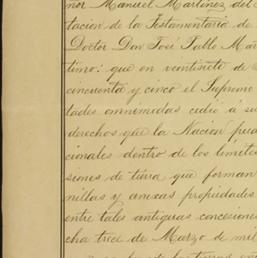 ñor Manuel Martinez del
tacion de la Testamentaria de
Doctor Don José Pablo Mar
timo: que en veintisiete de
cincuenta y cinco el Supremo
tades omnimodas cedió á su
derechos que la Nacion
cionales dentro de los limites
siones de tierra que forman
nillas y anexas propiedades
entre tales antiguas concesiones
cha trece de Marzo de mil